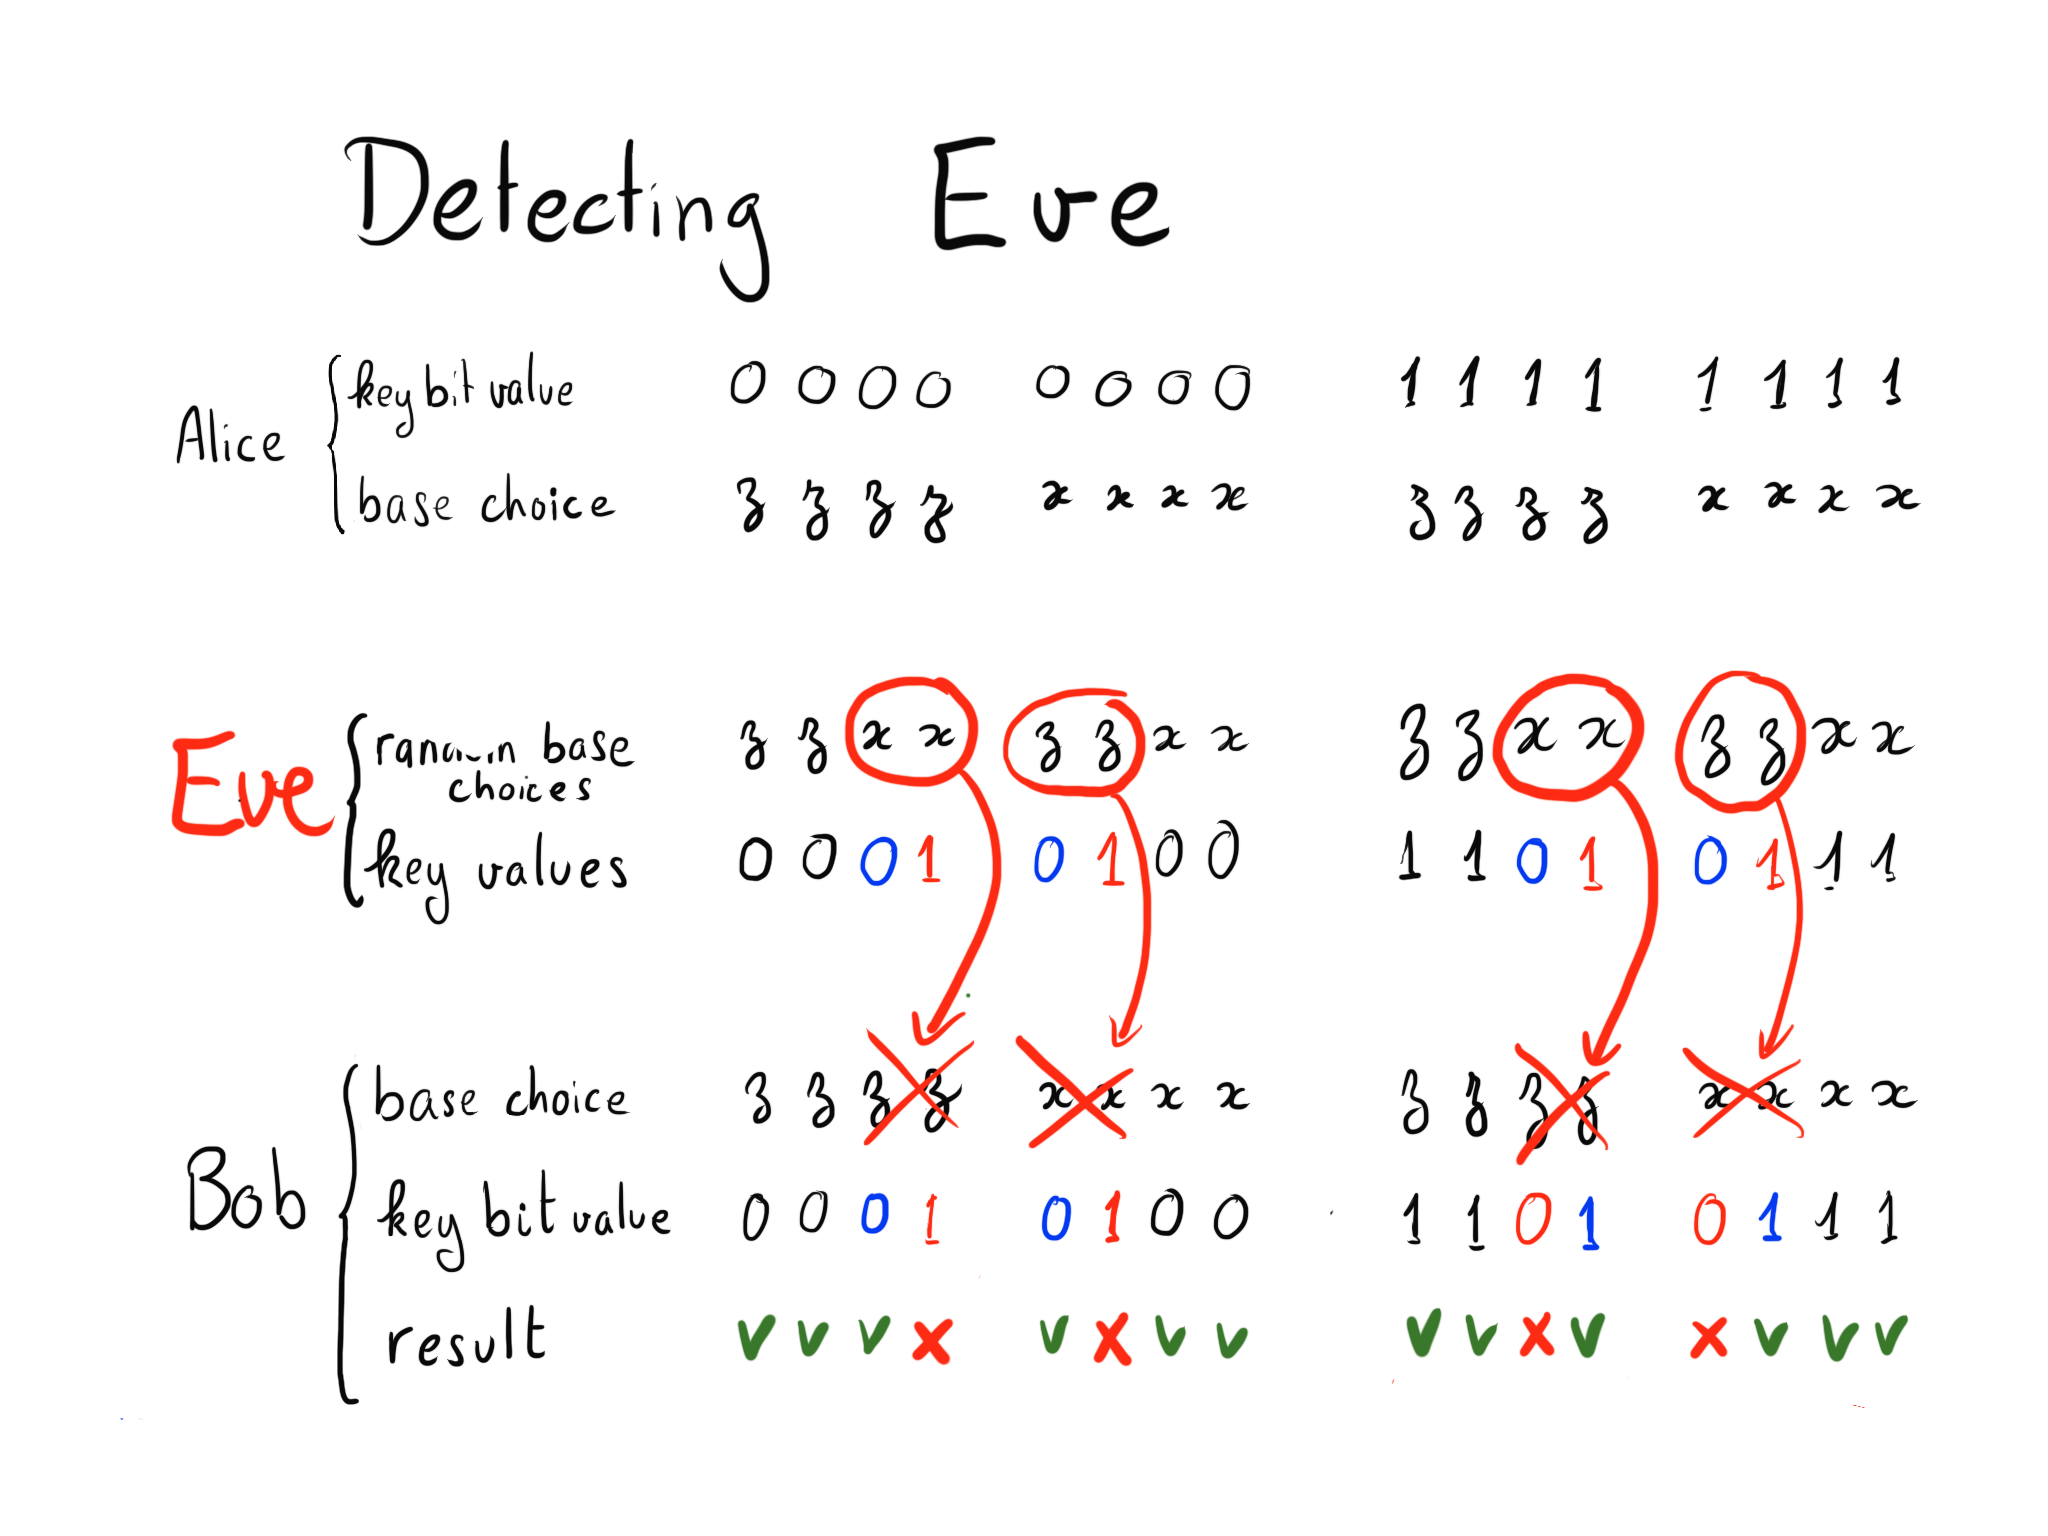 Detecting Eve
Alice
key bit value 0 0 0 0 0 0 0 0 1 1 1 1 1 1 1 1
base choice z z z z x x x x z z z z x x x x
Eve
base z z x x z z x x z z x x z z x x
choices
key values 0 0 0 1 0 1 0 0 1 1 0 1 0 1 1 1
Bob
base choice z z z z x x x x z z z z x x x x
key bit value 0 0 0 1 0 1 0 0 1 1 0 1 0 1 1 1
result v v v x v x v v v v x v x v v v